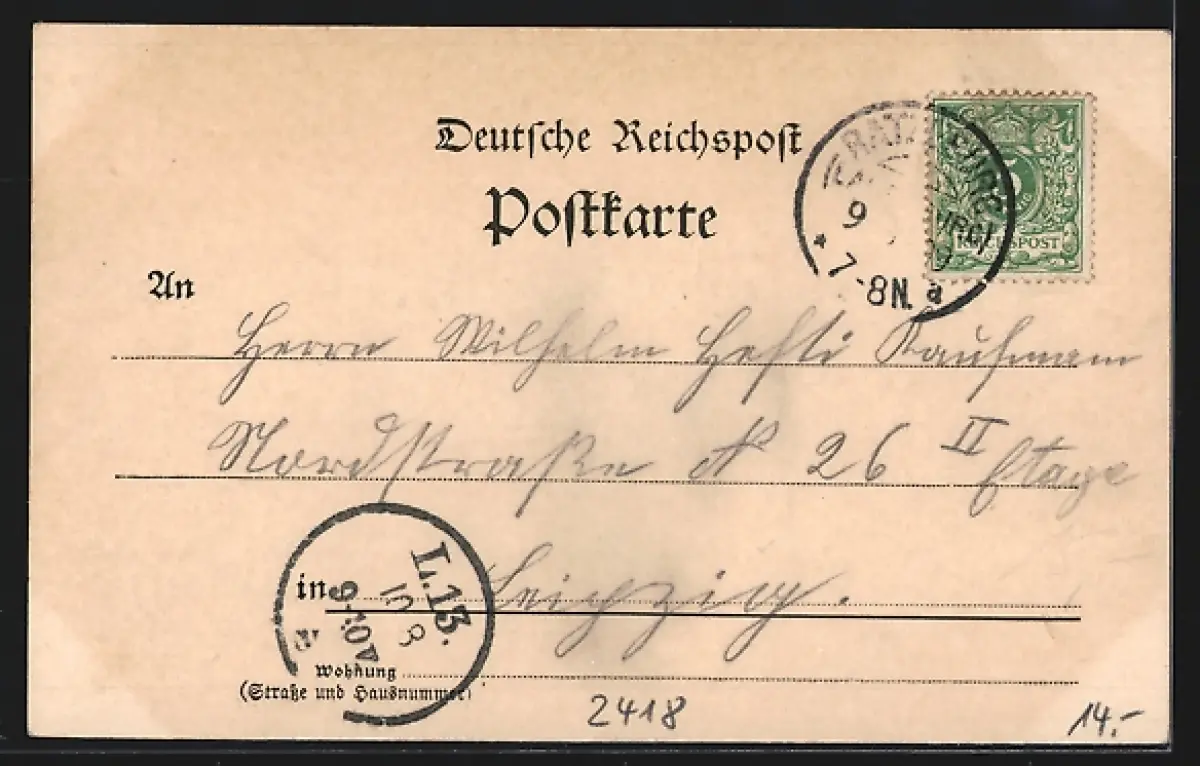 Deutsche Reichspost
Postkarte
5
REICHSPOST
9
* 7-8N. a
An
Herrn Wilhelm Hefti Kaufmann
Nordstraße № 26 II Etage
in Leipzig.
L.13.
10 8
9-10V
Wohnung
(Straße und Hausnummer)
2418
14.-